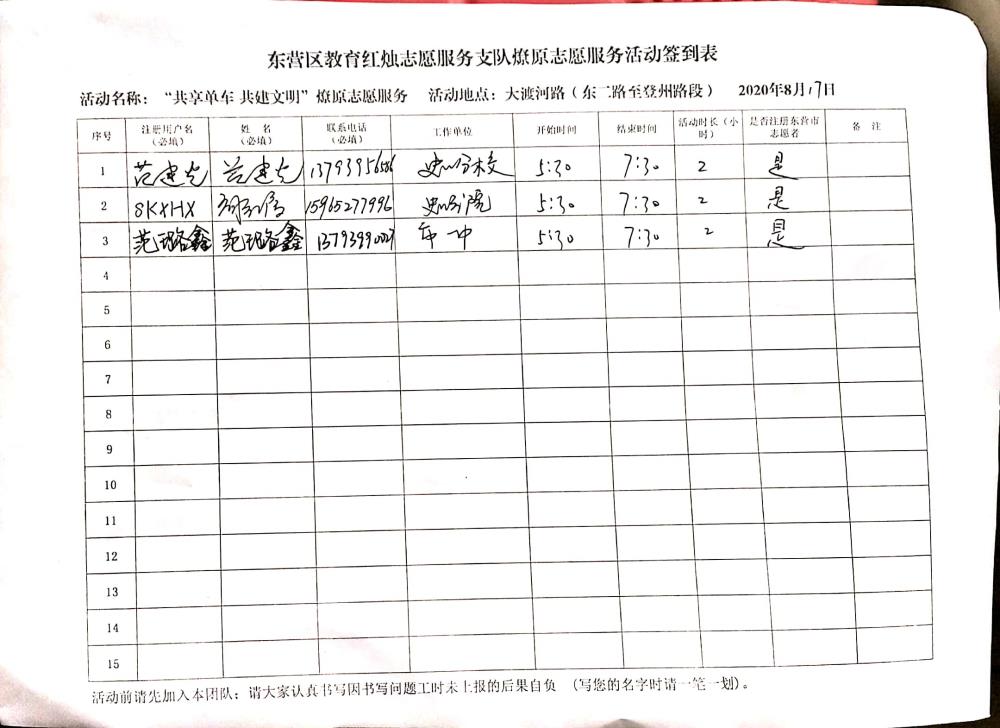 东营区教育红烛志愿服务支队燎原志愿服务活动签到表
活动名称：“共享单车 共建文明”燎原志愿服务 活动地点：大渡河路（东二路至登州路段） 2020年8月17日
序号 注册用户名（必填） 姓 名（必填） 联系电话（必填） 工作单位 开始时间 结束时间 活动时长（小时） 是否注册东营市志愿者 备 注
1 范建光 范建光 13793956586 5:30 7:30 2 是
2 SKXHX 15965277996 5:30 7:30 2 是
3 范璐鑫 范璐鑫 5:30 7:30 2 是
4
5
6
7
8
9
10
11
12
13
14
15
活动前请先加入本团队；请大家认真书写因书写问题工时未上报的后果自负 （写您的名字时请一笔一划）。